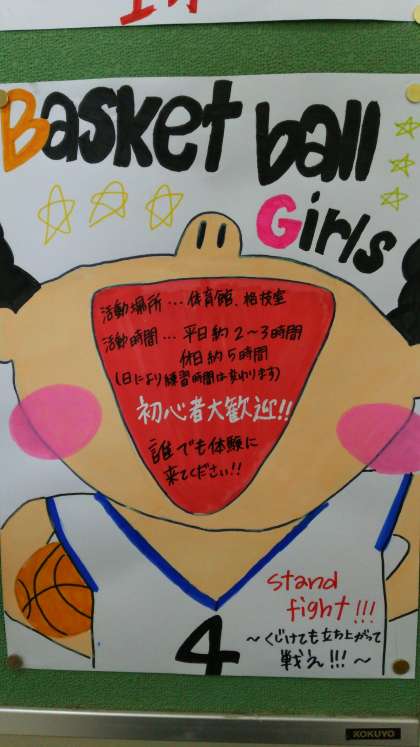 Basket ball
Girls
活動場所…体育館、格技室
活動時間…平日約2〜3時間
休日約5時間
(日により練習時間は変わります)
初心者大歓迎!!
誰でも体験に
来てください!!
stand
fight!!!
〜くじけても立ち上がって
戦え!!!〜
4
KOKUYO